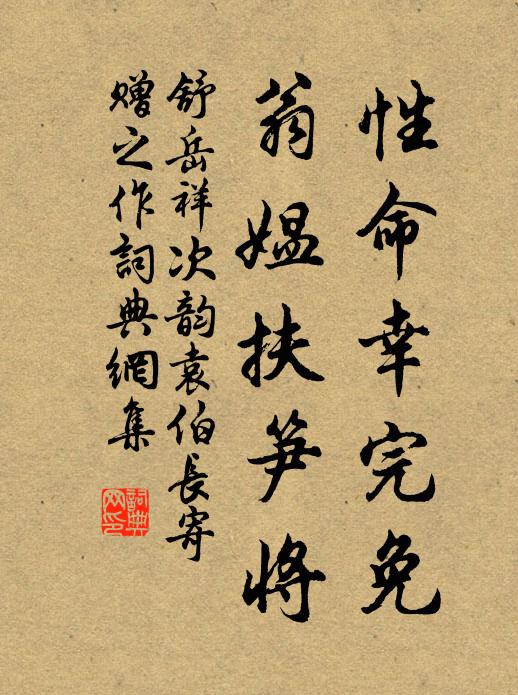 性命幸完免
翁媪扶笋將
舒岳祥次韵袁伯長寄
贈之作詞典網集
詞典
网印